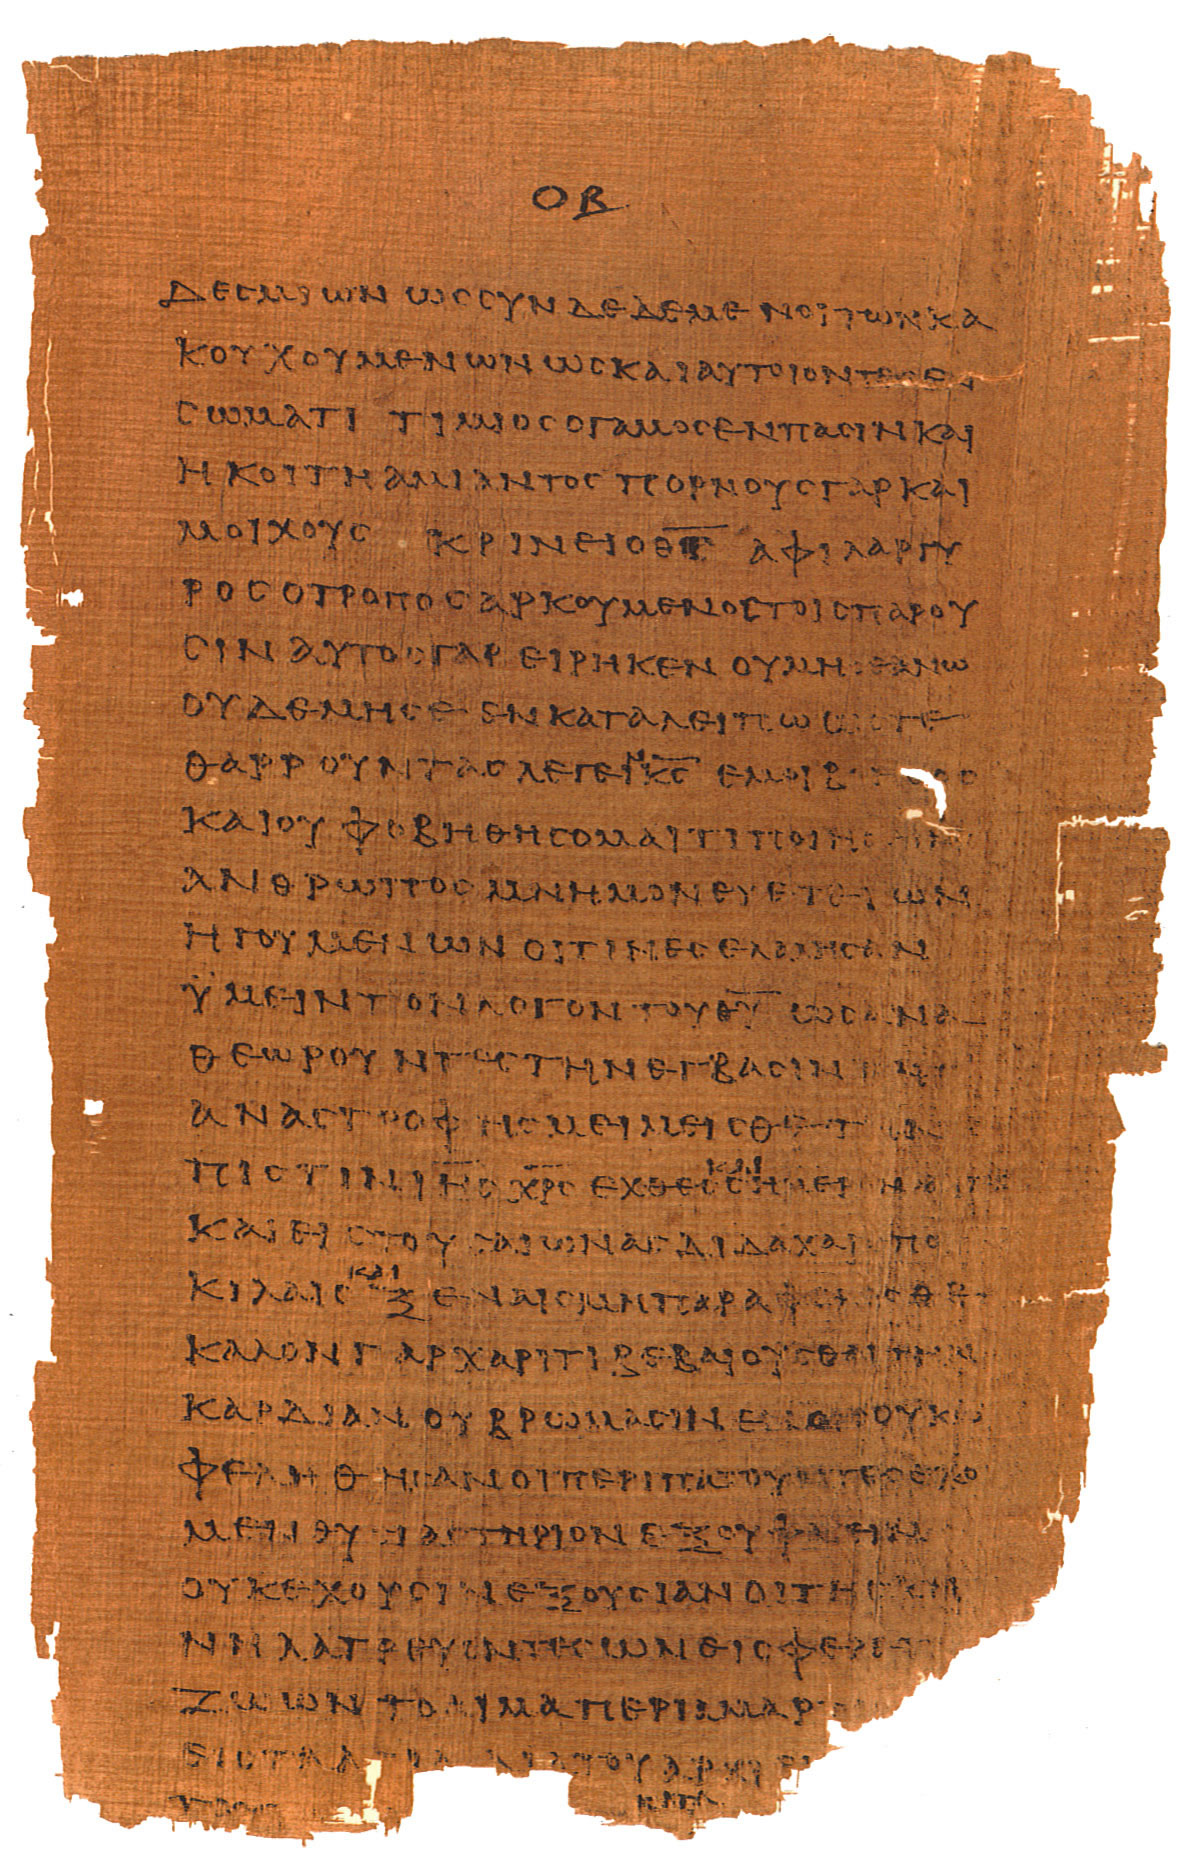 ΟΒ
ΔΕΣΜΙΩΝ ΩΣ ΣΥΝΔΕΔΕΜΕΝΟΙ ΤΩΝ ΚΑ
ΚΟΥΧΟΥΜΕΝΩΝ ΩΣ ΚΑΙ ΑΥΤΟΙ ΟΝΤΕΣ ΕΝ
ΣΩΜΑΤΙ ΤΙΜΙΟΣ Ο ΓΑΜΟΣ ΕΝ ΠΑΣΙΝ ΚΑΙ
Η ΚΟΙΤΗ ΑΜΙΑΝΤΟΣ ΠΟΡΝΟΥΣ ΓΑΡ ΚΑΙ
ΜΟΙΧΟΥΣ ΚΡΙΝΕΙ Ο ΑΦΙΛΑΡΓΥ
ΡΟΣ Ο ΤΡΟΠΟΣ ΑΡΚΟΥΜΕΝΟΣ ΤΟΙΣ ΠΑΡΟΥ
ΣΙΝ ΑΥΤΟΣ ΓΑΡ ΕΙΡΗΚΕΝ ΟΥ ΜΗ ΣΕ ΑΝΩ
ΟΥΔΕ ΜΗ ΣΕ ΕΝΚΑΤΑΛΕΙΠΩ ΩΣΤΕ
ΘΑΡΡΟΥΝΤΑΣ ΛΕΓΕΙΝ Κ̅Σ̅ ΕΜΟΙ
ΚΑΙ ΟΥ ΦΟΒΗΘΗΣΟΜΑΙ ΤΙ
ΑΝΘΡΩΠΟΣ ΜΝΗΜΟΝΕΥΕΤΕ ΤΩΝ
ΗΓΟΥΜΕΝΩΝ ΟΙΤΙΝΕΣ ΕΛΑΛΗΣΑΝ
ΫΜΕΙΝ ΤΟΝ ΛΟΓΟΝ ΤΟΥ Θ̅Υ̅ ΩΣ ΑΝΑ
ΘΕΩΡΟΥΝΤΕΣ ΤΗΝ ΕΓΒΑΣΙΝ
ΑΝΑΣΤΡΟΦΗΣ ΜΕΙΜΕΙΣΘΕ ΤΗΝ
ΠΙΣΤΙΝ Ι̅Η̅Σ̅ Χ̅Ρ̅Σ̅ ΕΧΘΕΣ ΚΑΙ ΣΗΜΕΡΟΝ
ΚΑΙ ΕΙΣ ΤΟΥΣ ΑΙΩΝΑΣ ΔΙΔΑΧΑΙΣ ΠΟ
ΚΙΛΑΙΣ ΚΑΙ ΞΕΝΑΙΣ ΜΗ ΠΑΡΑΦΕΡΕΣΘΕ
ΚΑΛΟΝ ΓΑΡ ΧΑΡΙΤΙ ΒΕΒΑΙΟΥΣΘΑΙ ΤΗΝ
ΚΑΡΔΙΑΝ ΟΥ ΒΡΩΜΑΣΙΝ ΟΥΚ Ω
ΦΕΛΗΘΗΣΑΝ ΟΙ ΠΕΡΙΠΑΤΟΥΝΤΕΣ ΕΧΟ
ΜΕΝ ΘΥΣΙΑΣΤΗΡΙΟΝ ΕΞ ΟΥ ΦΑΓΕΙΝ
ΟΥΚ ΕΧΟΥΣΙΝ ΕΞΟΥΣΙΑΝ ΟΙ ΤΗ ΣΚΗ
ΝΗ ΛΑΤΡΕΥΟΝΤΕΣ ΩΝ ΕΙΣΦΕΡΕΤΑΙ
ΖΩΩΝ ΤΟ ΑΙΜΑ ΠΕΡΙ ΑΜΑΡ
ΕΙΣ ΤΑ ΑΓΙΑ ΔΙΑ ΤΟΥ ΑΡΧΙΕΡΕ